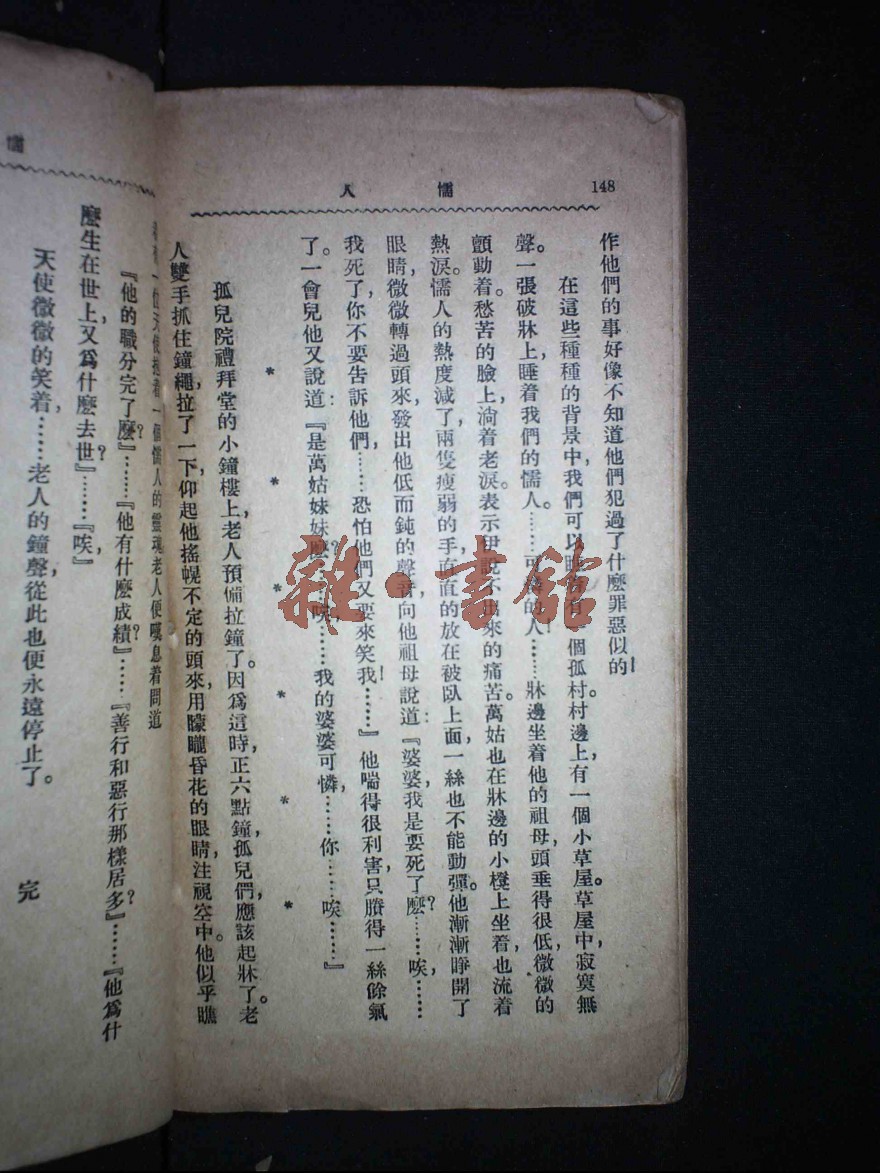 148
懦人
作他們的事好像不知道他們犯過了什麼罪惡似的！
在這些種種的背景中，我們可以有一個孤村。村邊上，有一個小草屋。草屋中寂寞無
聲。一張破牀上，睡着我們的懦人。……可憐的人！……牀邊坐着他的祖母，頭垂得很低，微微的
顫動着。愁苦的臉上，淌着老淚，表示伊說不出來的痛苦。萬姑也在牀邊的小櫈上坐着，也流着
熱淚。懦人的熱度減了，兩隻瘦弱的手，直直的放在被臥上面，一絲也不能動彈。他漸漸睜開了
眼睛，微微轉過頭來，發出他低而鈍的聲音，向他祖母說道：『婆婆，我是要死了麼？……唉，……
我死了，你不要告訴他們，……恐怕他們又要來笑我！……』他喘得很利害，只賸得一絲餘氣
了。一會兒他又說道：『是萬姑妹妹麼？……唉，……我的婆婆可憐，……你……唉……』
* * * * *
孤兒院禮拜堂的小鐘樓上，老人預備拉鐘了。因爲這時正六點鐘，孤兒們，應該起牀了。老
人雙手抓住鐘繩，拉了一下，仰起他搖幌不定的頭來，用矇矓昏花的眼睛，注視空中。他似乎瞧
懦
一位天使抱着一個懦人的靈魂，老人便嘆息着問道
『他的職分完了麼？』……『他有什麼成績？』……『善行和惡行那樣居多？』……『他爲什
麼生在世上，又爲什麼去世？』……『唉，』
天使微微的笑着，……老人的鐘聲，從此也便永遠停止了。
完
雜·書館